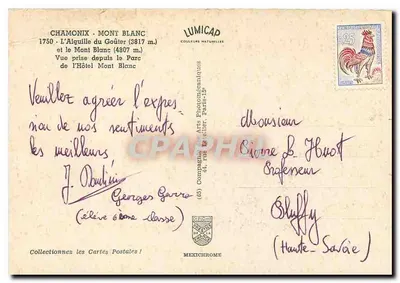 CHAMONIX - MONT BLANC
1750 - L'Aiguille du Goûter (3817 m.)
et le Mont Blanc (4807 m.)
Vue prise depuis le Parc
de l'Hôtel Mont Blanc
LUMICAP
COULEURS NATURELLES
Veuillez agréer l'expres
sion de nos sentiments
les meilleurs
Georges
(élève classe)
Collectionnez les Cartes Postales !
Compagnie des Arts Photomécaniques
44, rue Letellier, Paris-15e
MEXICHROME
Monsieur
Professeur
(Haute-Savoie)
CPARAMA